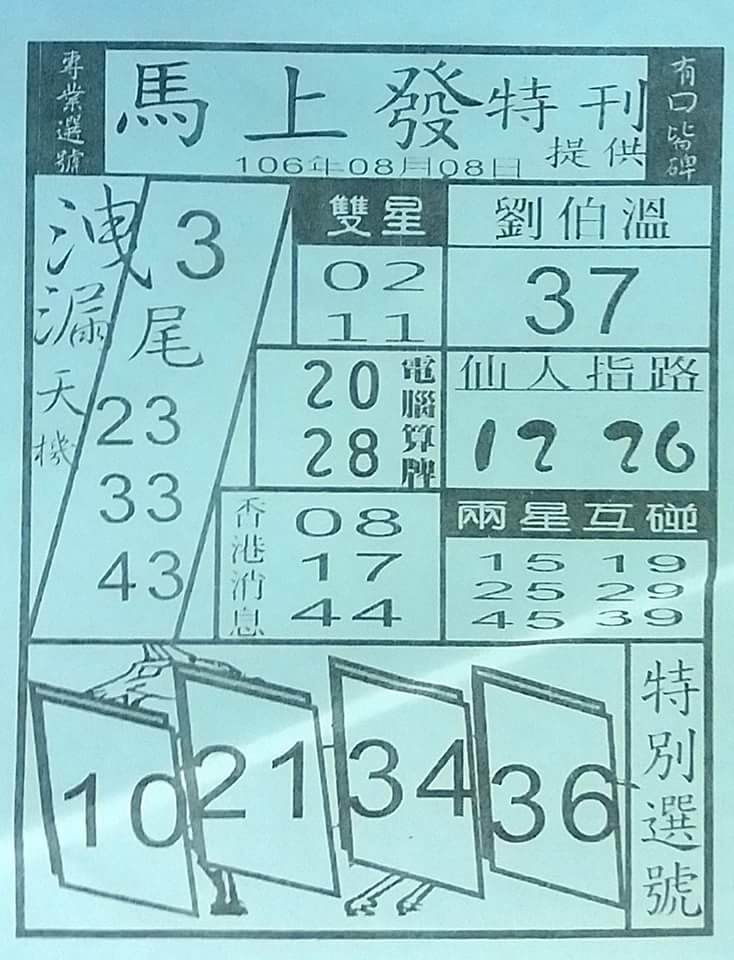 專業選號
馬上發特刊
提供
106年08月08日
有口皆碑
洩漏天機
3
尾
23
33
43
雙星
02
11
劉伯溫
37
20
28
電腦算牌
仙人指路
12 26
香港消息
08
17
44
兩星互碰
15 19
25 29
45 39
10 21 34 36
特別選號